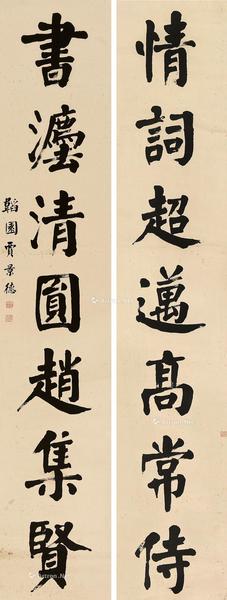 情詞超邁高常侍
書灋清圓趙集賢
韜園賈景德